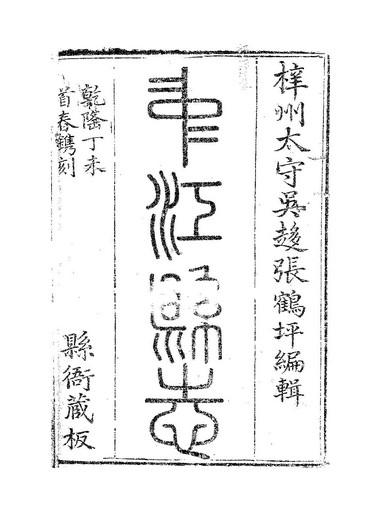 梓州太守吳趍張鶴坪編輯
中江縣志
乾隆丁未
首春鐫刻
縣衙藏板